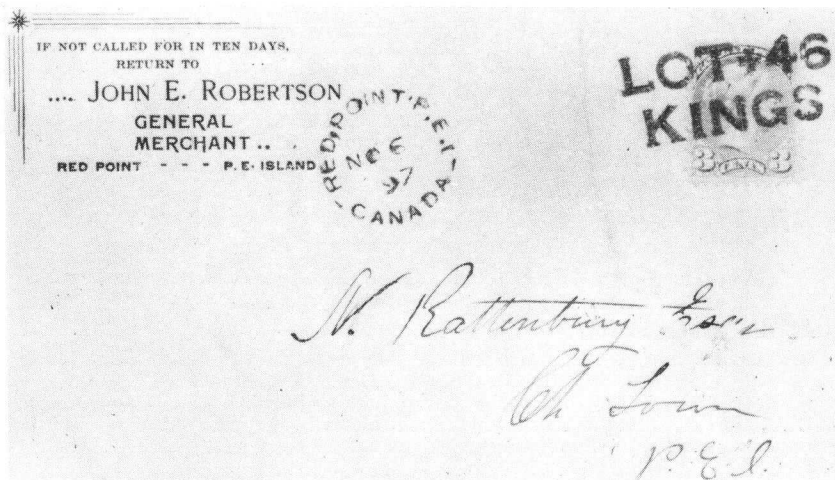 IF NOT CALLED FOR IN TEN DAYS,
RETURN TO
.... JOHN E. ROBERTSON
GENERAL
MERCHANT ..
RED POINT - - - P. E. ISLAND
RED POINT · P.E.I -
NO 6
97
- CANADA -
LOT · 46
KINGS
3 3
N. Rattenbury Esqr
Ch Town
P. E. I.